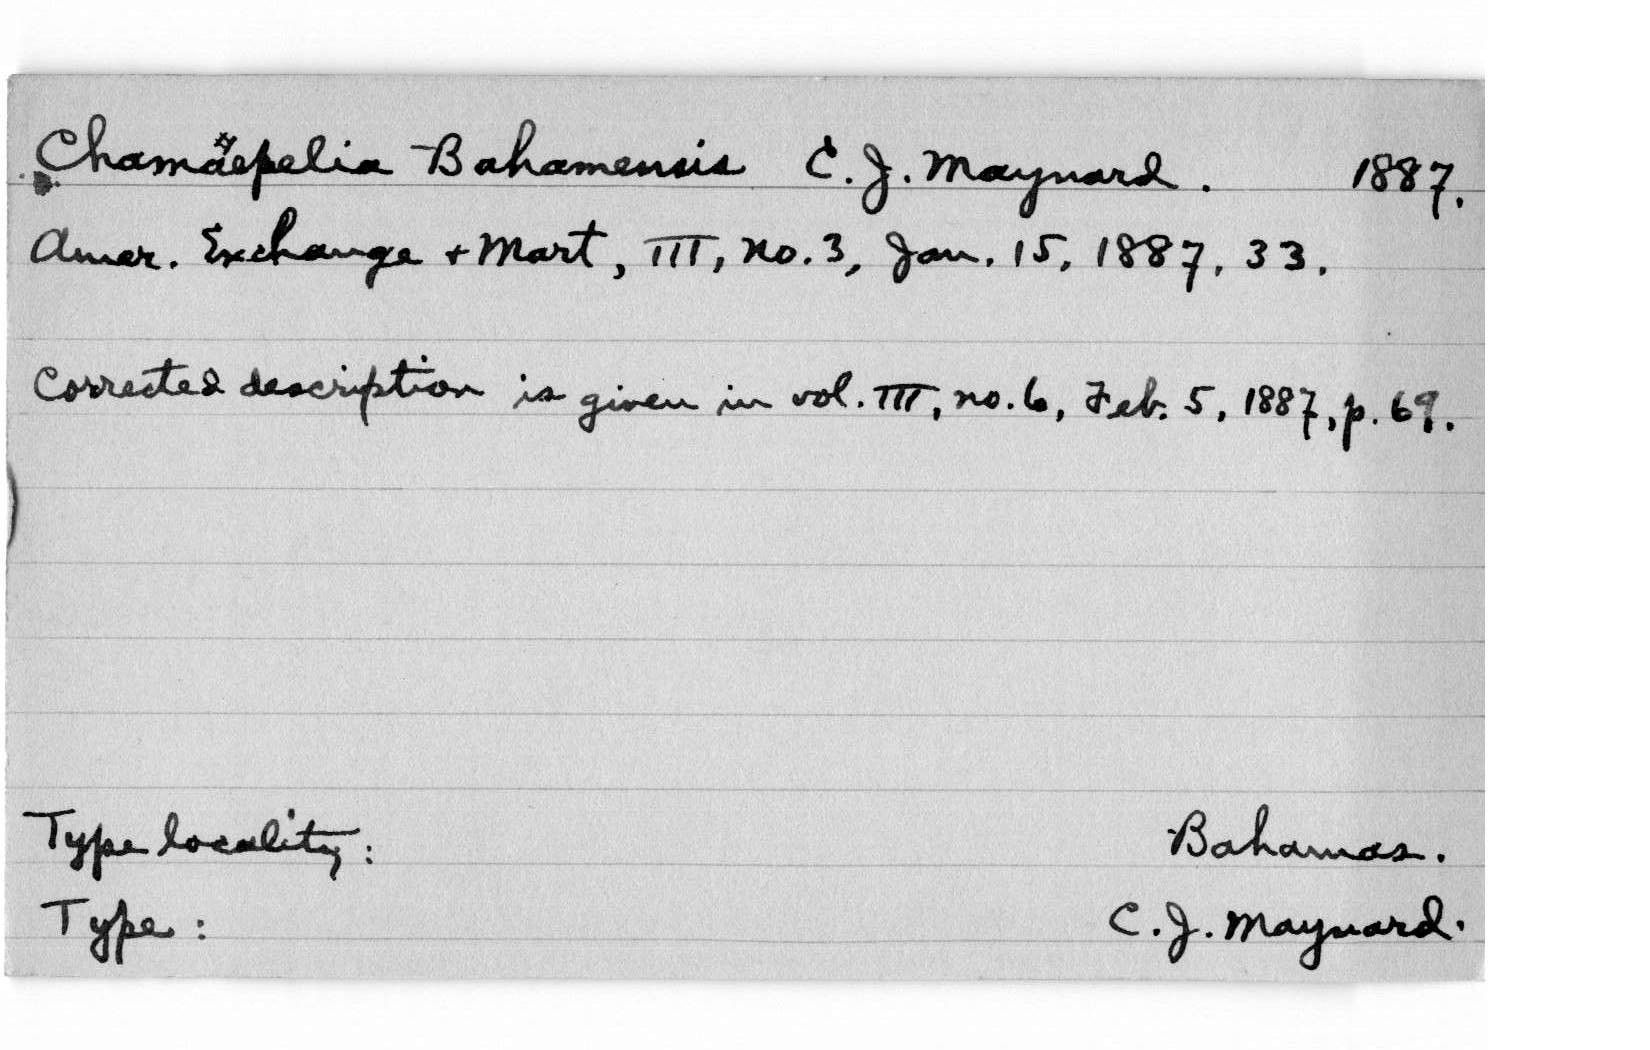 Chamäepelia Bahamensis C. J. Maynard. 1887.
Amer. Exchange + Mart, III, no. 3, Jan. 15, 1887, 33.
Corrected description is given in vol. III, no. 6, Feb. 5, 1887, p. 69.
Type locality: Bahamas.
Type: C. J. Maynard.